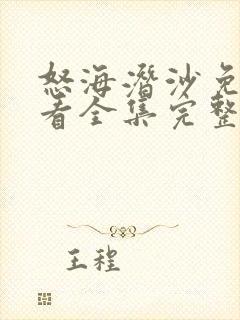 怒海潜沙免
看全集完整
王程